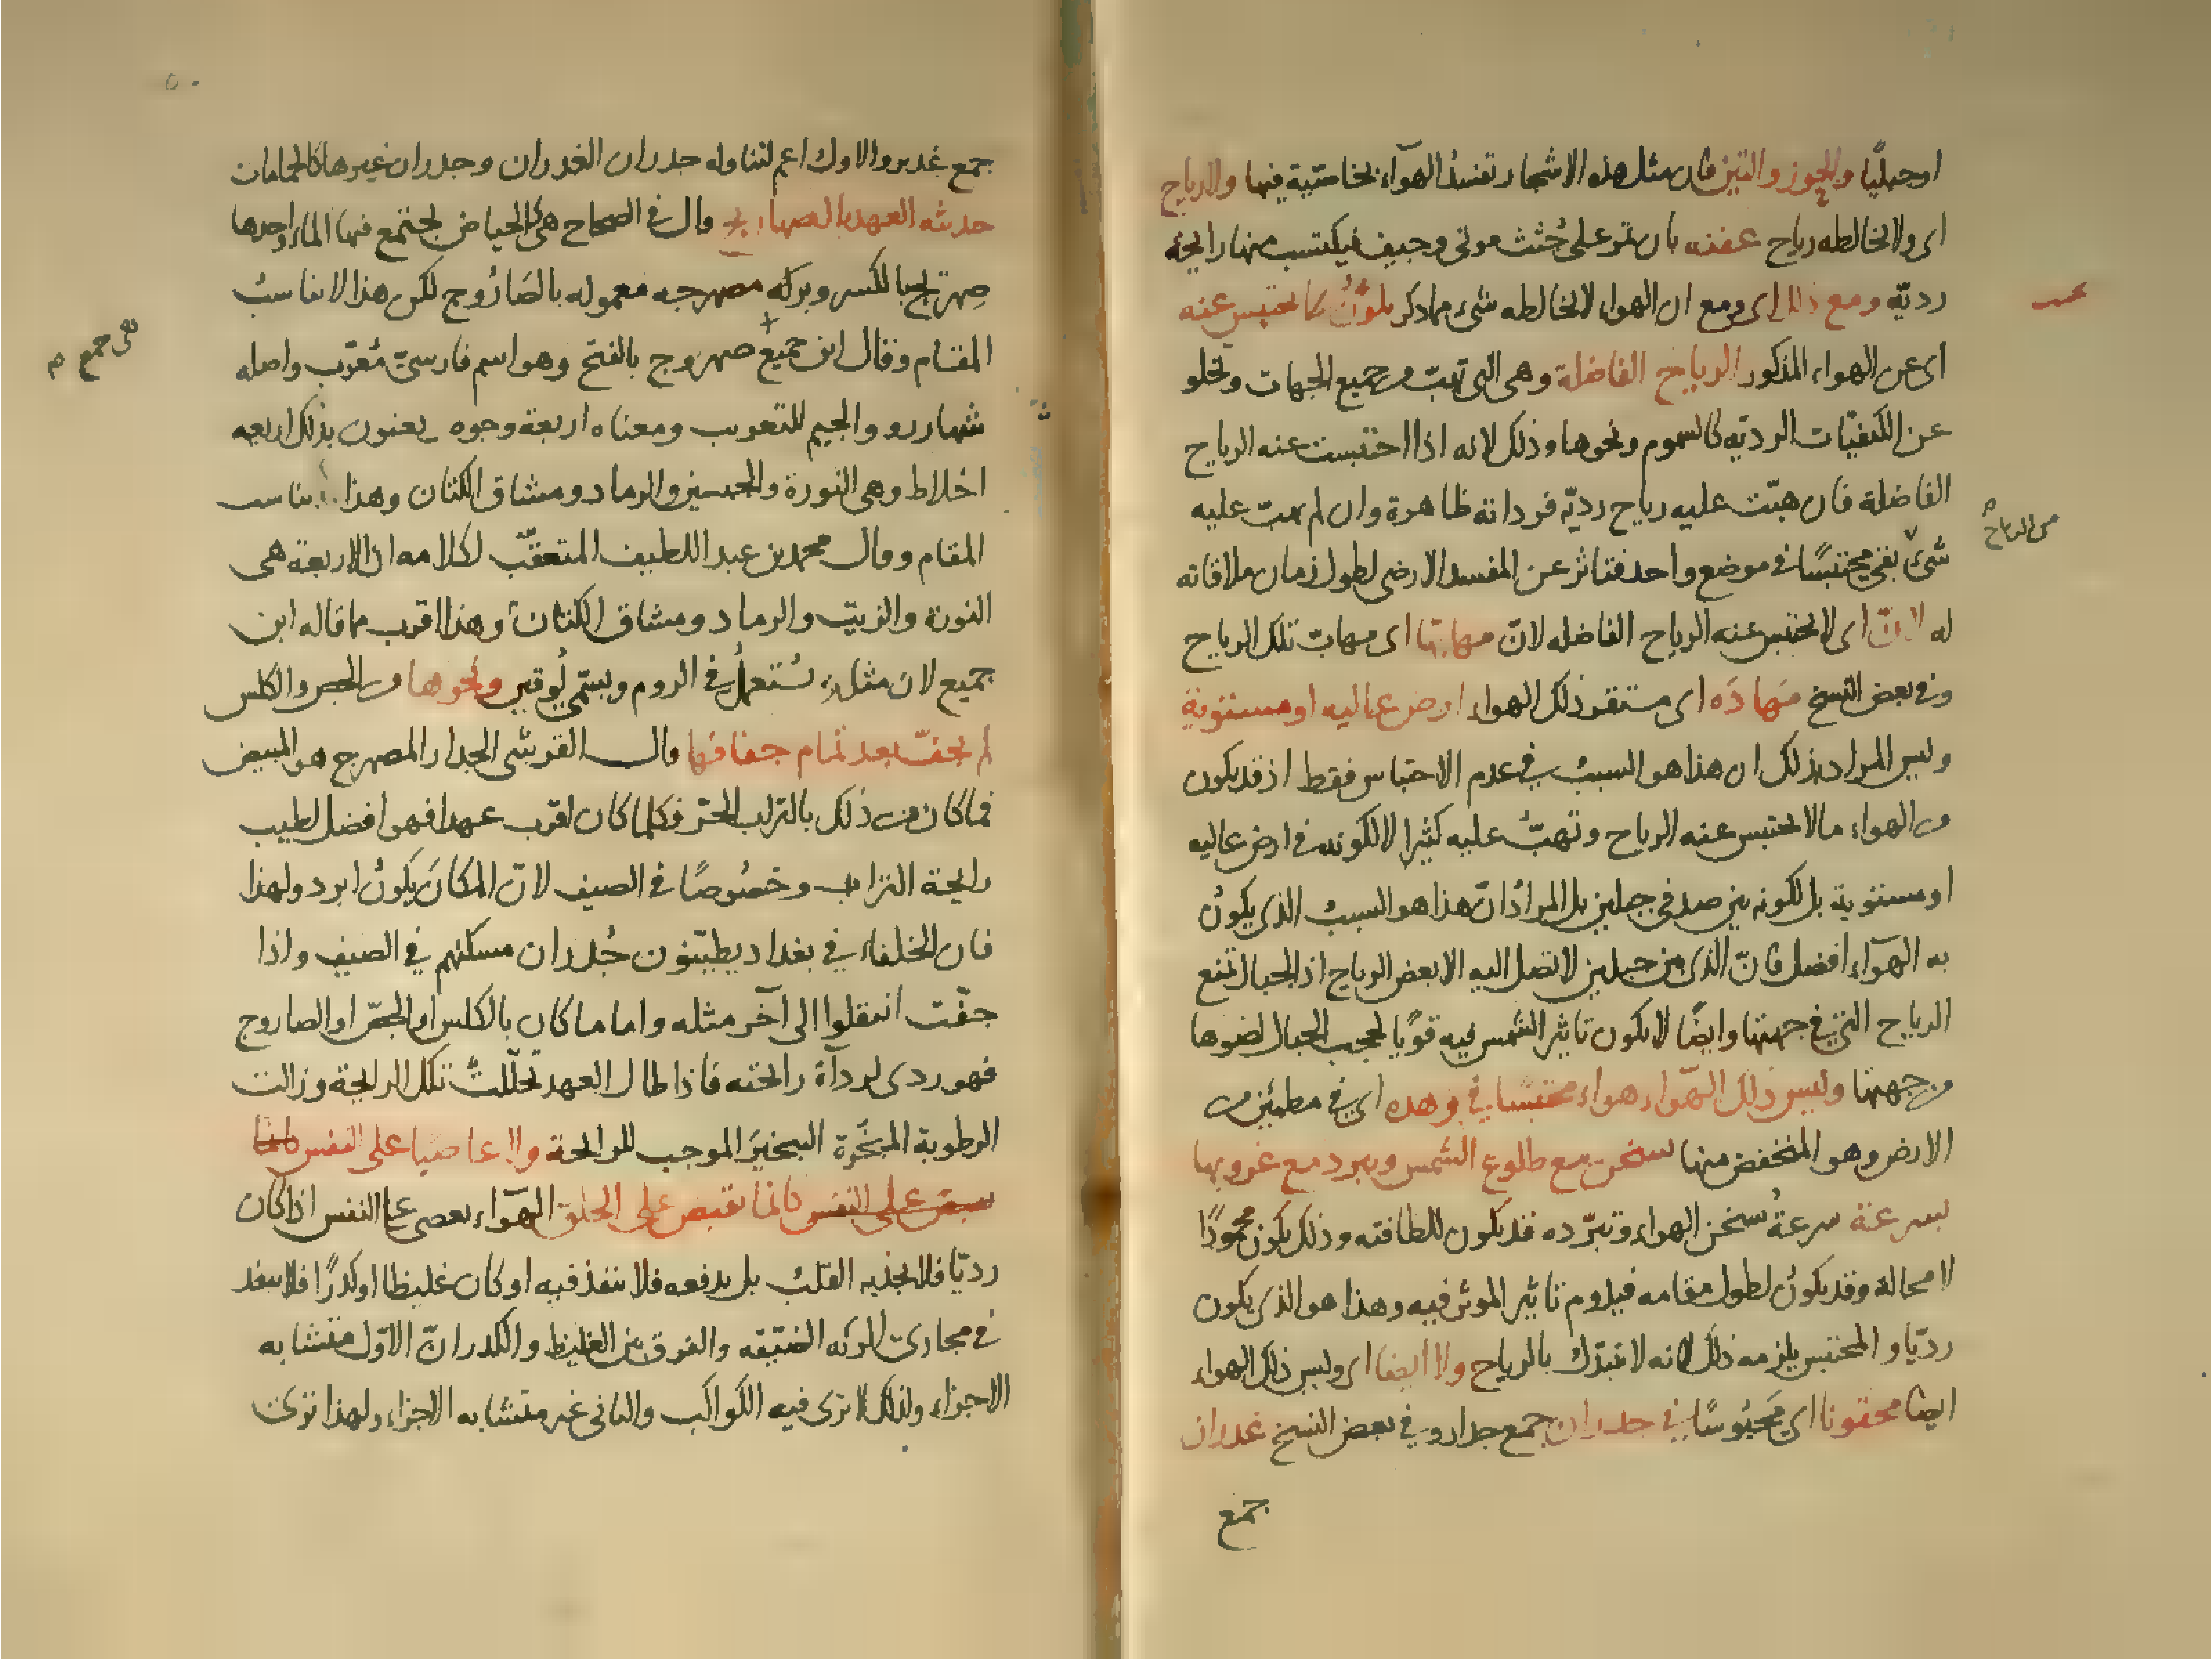 او جبليّا والجوز والتين فان مثل هذه الاشجار تفسدُ الهوآء بخاصّية فيها ولا رياح
اى ولا تخالطه رياح عفنه بان تمر على جُثث موتى وجيف فيكتسب منها رايحة
رديّه ومع ذلك اى ومع ان الهواء لا يخالطه شىء مما ذكر يكونُ لا تحتبس عنه
اى عن الهواء المذكور الرياح الفاضلة وهى التى تهبّ من جميع الجهات وتخلو
عن الكيفيّات الرديّه كالسموم ونحوها وذلك لانه اذا احتبست عنه الرياح
الفاضلة فان هبّت عليه رياح رديّه فرداته ظاهرة وان لم تهب عليه
شىءٌ بقى محتبسًا فى موضع واحد فتاثر عن المفسد الارضى لطول زمان ملاقاته
له لانّ اى لا تحتبس عنه الرياح الفاضله لانّ مهابّها اى مهابّ تلك الرياح
وفى بعض النسخ مَهادَه اى مستقر ذلك الهواء ارض عاليه او مستوية
وليس المراد بذلك ان هذا هو السببُ فى عدم الاحتباس فقط اذ قد يكون
من الهواء ما لا تحتبس عنه الرياح وتهبُّ عليه كثيرا لا لكونه فى ارض عاليه
او مستوية بل لكونه بين صدفى جبلين بل المرادُ انّ هذا هو السببُ الذى يكونُ
به الهوآء افضل فانّ الذى بين جبلين لا تصل اليه الا بعض الرياح اذ الجبال تمنع
الرياح التى فى جهتها وايضًا لا يكون تاثير الشمس فيه قويًا لحجب الجبال لضوها
من جهتها وليس ذلك الهوآء هواء محتبسًا فى وهده اى فى مطمئن من
الارض وهو المنخفض منها يسخن مع طلوع الشمس ويبرد مع غروبها
بسرعة سرعةُ تسخن الهواء وتبرّده قد يكون للطافته وذلك يكون محمودًا
لا محالة وقد يكونُ لطول مقامه فيدوم تاثير الموثر فيه وهذا هو الذى يكون
رديّا والمحتبس يلزمه ذلك لانه لا يتبدّل بالرياح ولا ايضا اى وليس ذلك الهواء
ايضا محقونا اى مَحبُوسًا فى جدران جمع جدار وفى بعض النسخ غدران
جمع
من الرياح
جمع غدير والاول اعم لتناوله جدران الغدران وجدران غيرها كالحمامات
حديثه العهد بالصهاريج قال فى الصحاح هى كالحياض يجتمع فيها الماء واحدها
صِهريج بالكسر وبركه مصهرجه معموله بالصَارُوج لكن هذا لا يناسبُ
المقام وقال ابن جميع صهروج بالفتح وهو اسم فارسىّ مُعرّب واصله
شهاررو والجيم للتعريب ومعناه اربعة وجوه يعنون بذلك اربعه
اخلاط وهى النورة والجبسين والرماد ومشاق الكتان وهذا يناسب
المقام وقال محمد بن عبد اللطيف المتعقّب لكلامه ان الاربعة هى
النورة والزيت والرماد ومشاق الكتان وهذا اقرب مما قاله ابن
جميع لان مثله يُستعملُ فى الروم ويسمّى لُوقير ونحوها من الجص والكلس
لم يجفّ بعد تمام جفافها قال القرشى الجدار المصهرج هو المبيض
فما كان من ذلك بالتراب الحرّ فكلما كان اقرب عهدا فهو افضل لطيب
رايحة التراب وخصُوصًا فى الصيف لانّ المكانَ يكونُ ابرد ولهذا
فان الخلفاء فى بغداد يطيّنون جُدران مسكنهم فى الصيف واذا
جفّت انتقلوا الى آخر مثله واما ما كان بالكلس او الجصّ او الصاروج
فهو ردى لردآة رايحته فاذا طال العهد تحلّلتْ تلك الرايحة وزالت
الرطوبة المبخّرة البخيرَ الموجب للرايحة ولا عاصيا على النفس كانما
يقبض على النفس كانما يقبض على الحلق الهوآء يعصى على النفس اذا كان
رديّا فلا يجذبه القلبُ بل يدفعه فلا ينفذ فيه او كان غليظا او كدرًا فلا ينفذ
فى مجارى الريه الضيّقه والفرق بين الغليظ والكدر انّ الاوّل متشابه
الاجزاء ولذلك لا ترى فيه الكواكب والثانى غير متشابه الاجزاء ولهذا ترى